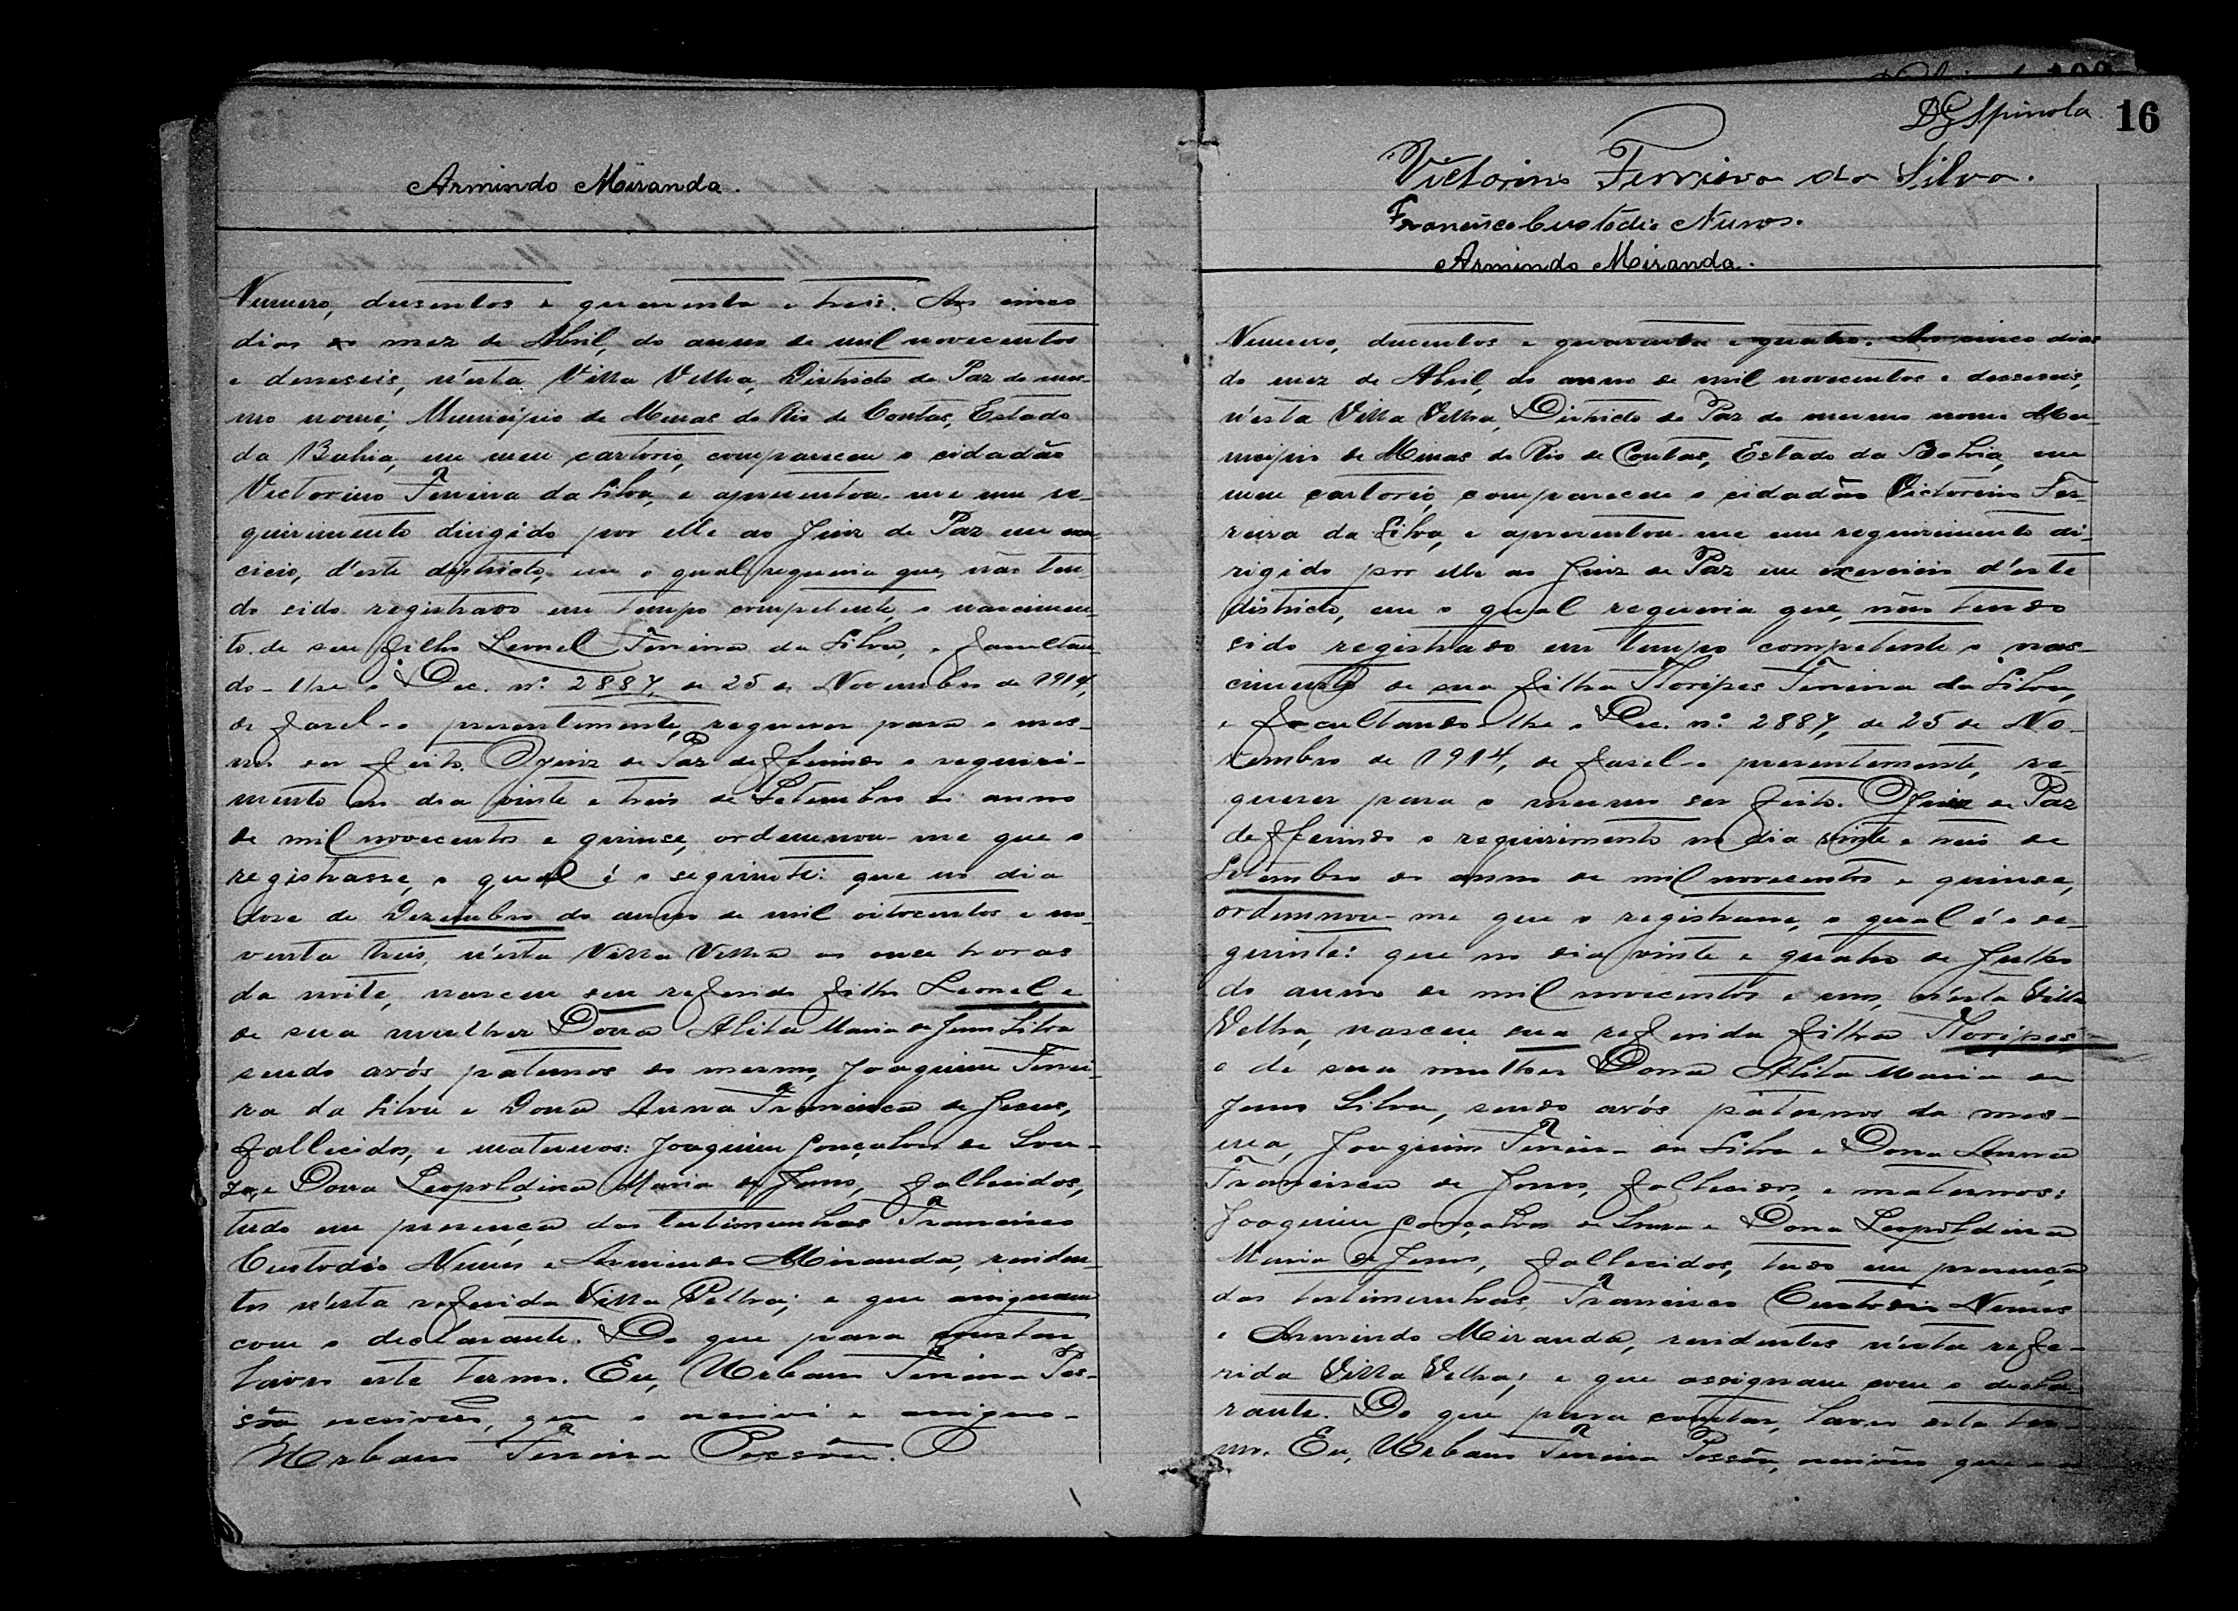 Armindo Miranda.
Numero, dusentos e quarenta e treis. Aos cinco
dias do mez de Abril, do anno de mil novecentos
e deseseis, n'esta Villa Velha, Districto de Paz do mes-
mo nome; Municipio de Minas do Rio de Contas, Estado
da Bahia, em meu cartorio, compareceu o cidadão
Victorino Ferreira da Silva, e apresentou-me um re-
quirimento dirigido por elle ao Juiz de Paz em exer-
cicio, d'este districto, em o qual requeria que, não ten-
do sido registrado em tempo competente, o nascimen-
to de seu filho Leonel Ferreira da Silva, e facultan-
do-lhe o Dec. nº 2887, de 25 de Novembro de 1914,
de fasel-o presentimente, requerer para o mes-
mo ser feito. O Juiz de Paz defferindo o requiri-
mento no dia vinte e treis de Setembro do anno
de mil novecentos e quinse, ordemnou-me que o
registrasse, o qual é o seguinte: que no dia
dose de Dezembro do anno de mil oitocentos e no-
venta treis, n'esta Villa Velha as onse horas
da noite, nasceu seu referido filho Leonel, e
de sua mulher Dona Alita Maria de Jesus Silva
sendo avós paternos do mesmo, Joaquim Ferrei-
ra da Silva e Dona Anna Francisca de Jesus,
fallecidos, e maternos: Joaquim Gonçalves de Sou-
za, e Dona Leopoldina Maria de Jesus, fallecidos,
tudo em presença das testimunhas Francisco
Custodio Nunes e Armindo Miranda, residen-
tes n'esta referida Villa Velha; e que assignam
com o declarante. Do que para constar
lavro este termo. Eu, Urbano Ferreira Pes-
sôa escrivão, que o escrivi e assigno-
Urbano Ferreira Pessôa.
D G Spinola 16
Victorino Ferreira da Silva.
Francisco Custódio Nunes.
Armindo Miranda.
Numero, ducentos e quarenta e quatro. Aos cinco dias
do mez de Abril, do anno de mil novecentos e deseseis,
n'esta Villa Velha, Districto de Paz do mesmo nome Mu-
nicipio de Minas do Rio de Contas, Estado da Bahia, em
meu cartorio, compareceu o cidadão Victorino Fer-
reira da Silva, e apresentou-me um requirimento di-
rigido por elle ao Juiz de Paz em exercicio d'este
districto, em o qual requeria que, não tendo
sido registrado em tempo competente o nas-
cimento de sua filha Floripes Ferreira da Silva,
e facultando-lhe o Dec. nº 2887, de 25 de No-
vembro de 1914, de fasel-o presentemente, re-
querer para o mesmo ser feito. O Juiz de Paz
defferindo o requirimento no dia vinte e treis de
Setembro do anno de mil novecentos e quinse,
ordemnou-me que o registrasse, o qual é o se-
guinte: que no dia vinte e quatro de Julho
do anno de mil novecentos e um, n'esta Villa
Velha, nasceu sua referida filha Floripes,
e de sua mulher Dona Alita Maria de
Jesus Silva, sendo avós paternos da mes-
ma, Joaquim Ferreira da Silva e Dona Anna
Francisca de Jesus, fallecidos, e maternos:
Joaquim Gonçalves de Souza e Dona Leopoldina
Maria de Jesus, fallecidos, tudo em presença
das testimunhas, Francisco Custodio Nunes
e Armindo Miranda, residentes n'esta refe-
rida Villa Velha; e que assignam com o decla-
rante. Do que para constar, lavro este ter-
mo. Eu, Urbano Ferreira Pessôa, escrivão que o